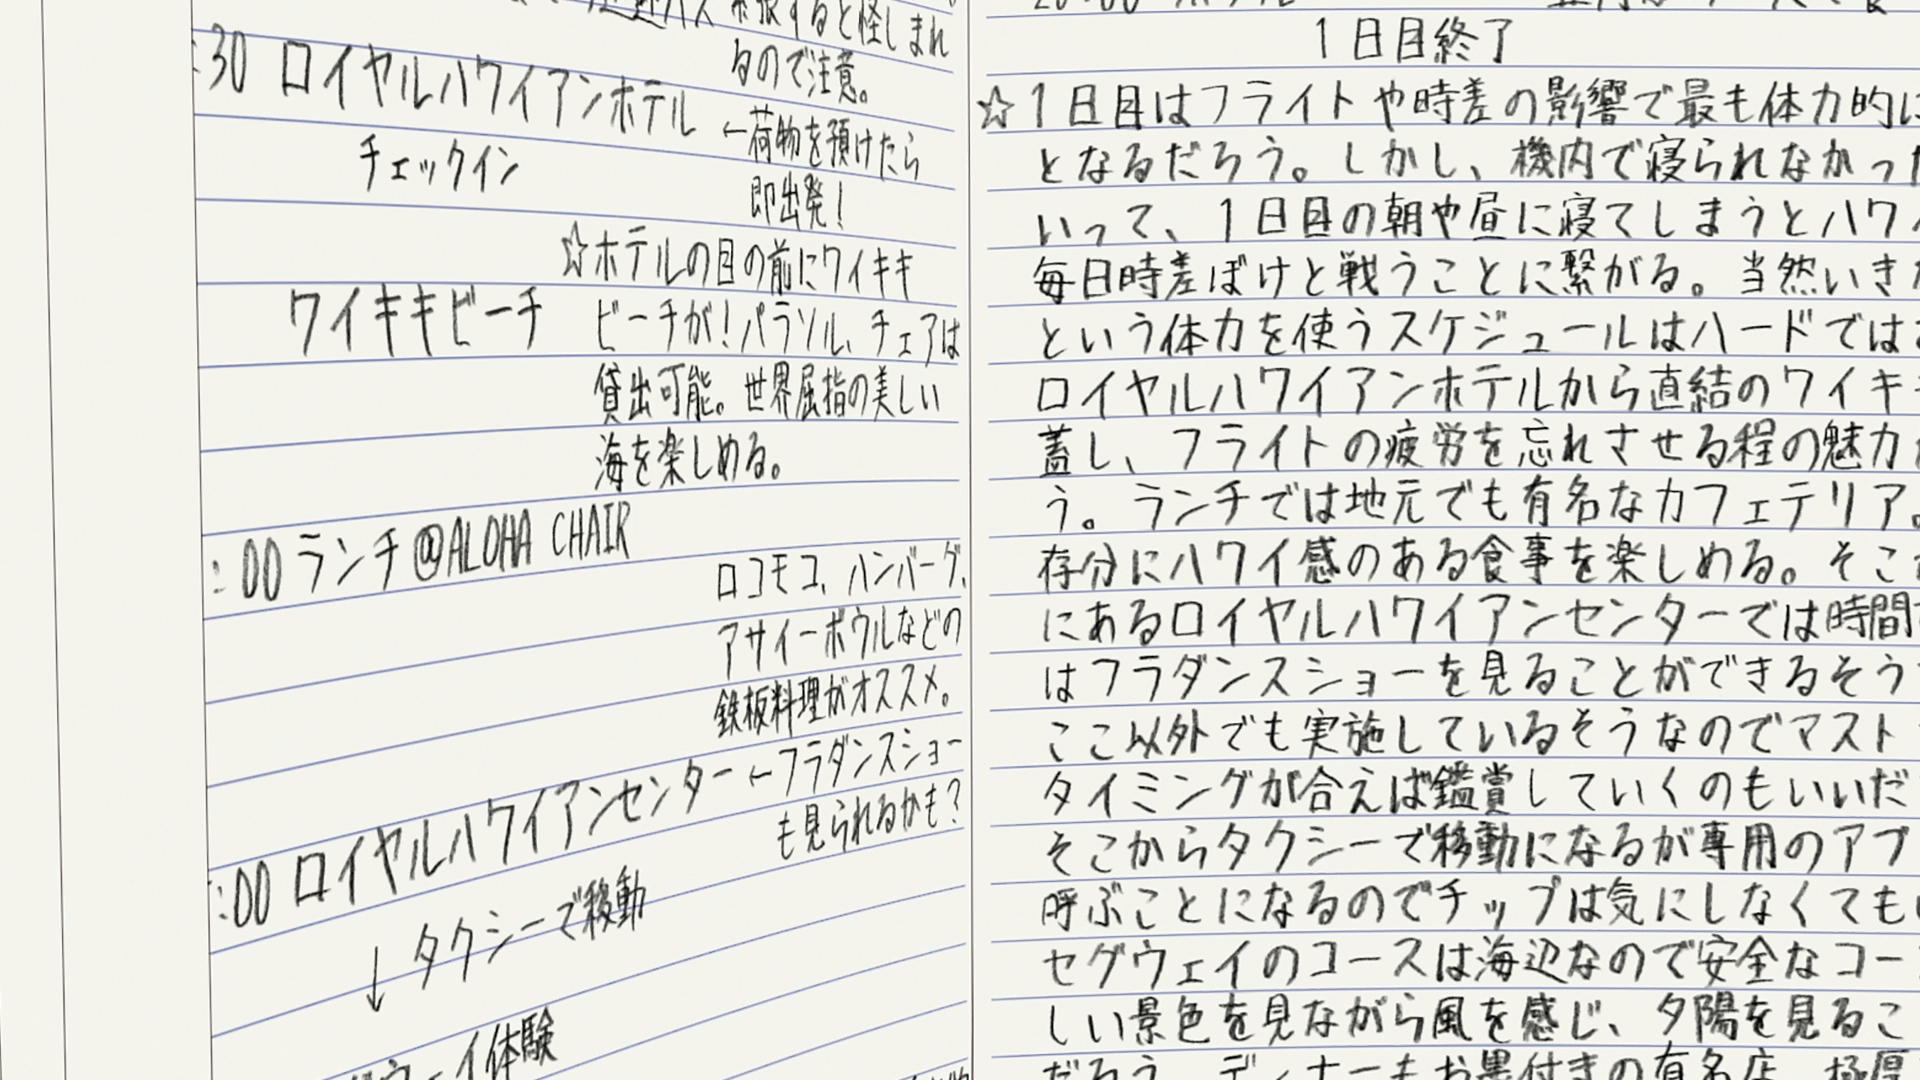 張すると怪しまれ
るので注意。
:30 ロイヤルハワイアンホテル
チェックイン
←荷物を預けたら
即出発!
☆ホテルの目の前にワイキキ
ワイキキビーチ
ビーチが!パラソル、チェアは
貸出可能。世界屈指の美しい
海を楽しめる。
:00 ランチ@ALOHA CHAIR
ロコモコ、ハンバーグ、
アサイーボウルなどの
鉄板料理がオススメ。
:00 ロイヤルハワイアンセンター
←フラダンスショー
も見られるかも?
↓ タクシーで移動
ウェイ体験
1日目終了
☆1日目はフライトや時差の影響で最も体力的に
となるだろう。しかし、機内で寝られなかった
いって、1日目の朝や昼に寝てしまうとハワイ
毎日時差ぼけと戦うことに繋がる。当然いき
という体力を使うスケジュールはハードでは
ロイヤルハワイアンホテルから直結のワイキ
蓋し、フライトの疲労を忘れさせる程の魅力
う。ランチでは地元でも有名なカフェテリア。
存分にハワイ感のある食事を楽しめる。そこ
にあるロイヤルハワイアンセンターでは時間
はフラダンスショーを見ることができるそう
ここ以外でも実施しているそうなのでマスト
タイミングが合えば鑑賞していくのもいいだ
そこからタクシーで移動になるが専用のアプ
呼ぶことになるのでチップは気にしなくても
セグウェイのコースは海辺なので安全なコー
しい景色を見ながら風を感じ、夕陽を見るこ
だろう。ディナーもお墨付きの有名店、極厚